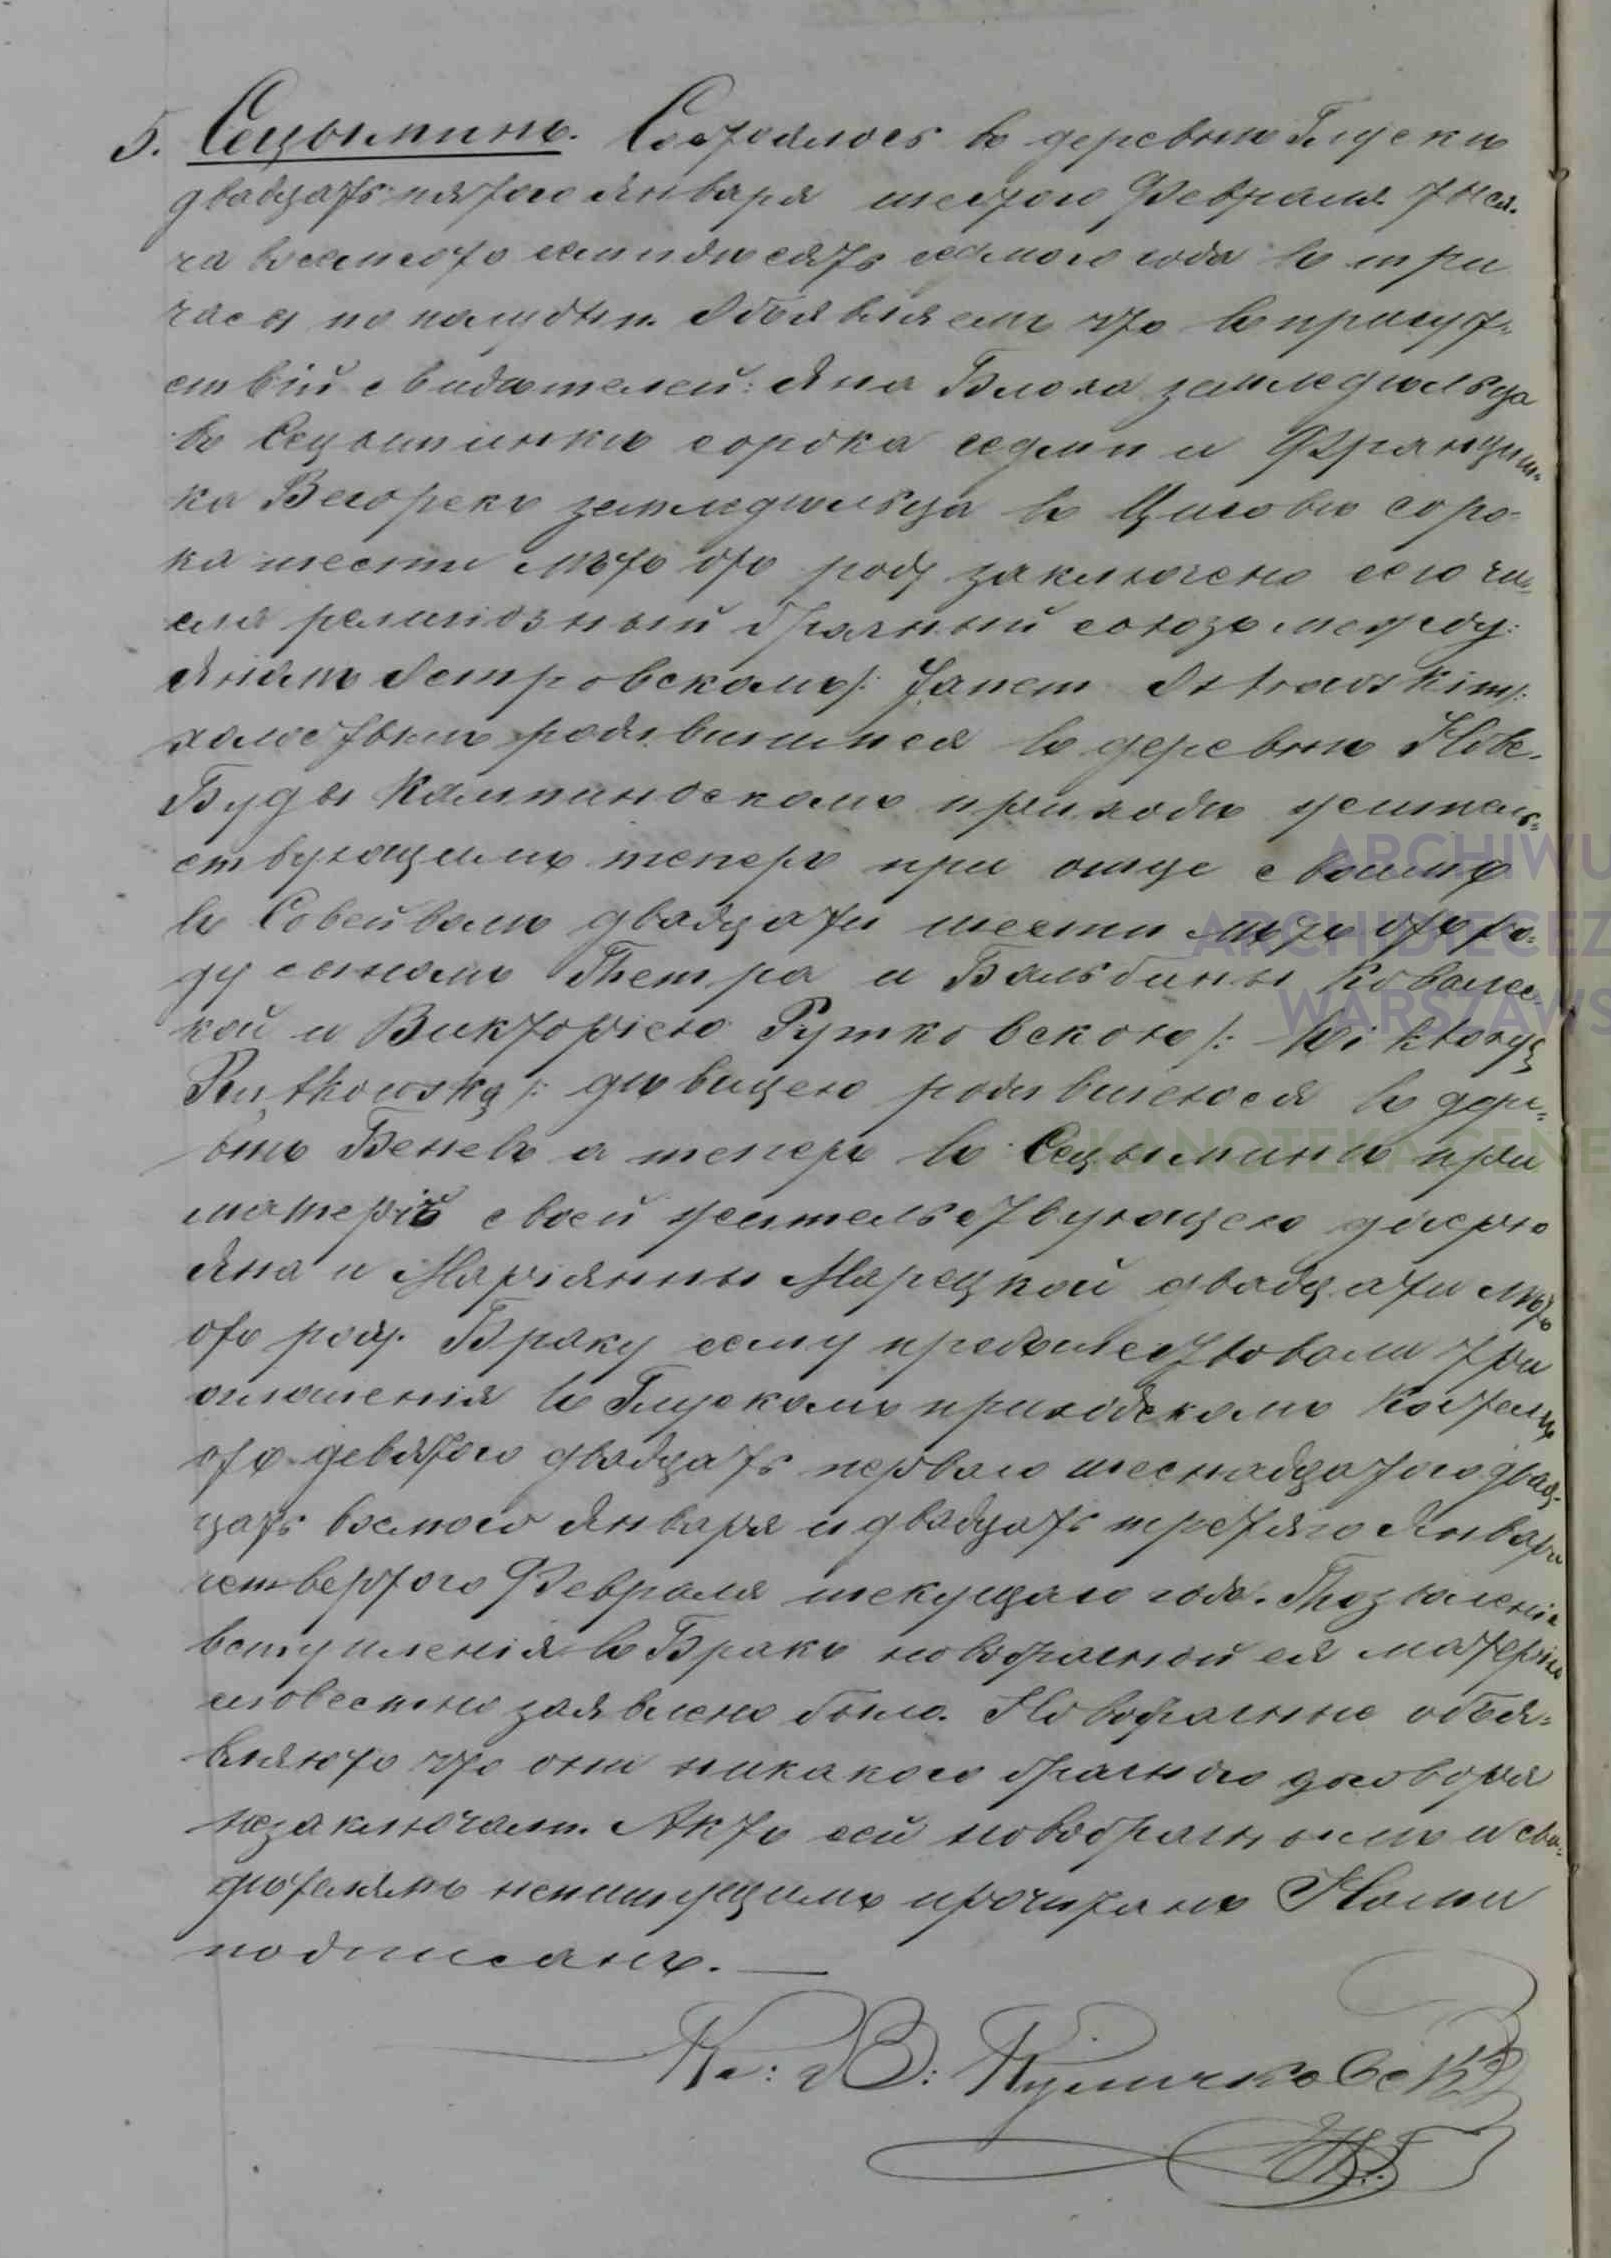 5. Сецыминъ. Состоялось въ деревни Глускъ
двадцать пятого Января шестого Февраля тыся-
ча восемсотъ семидѣсять седмого года въ три
часы по полудни. Объявляемъ что въ присут-
ствій свидѣтелей: Яна Блоха земледѣльца
въ Сецыминкѣ сорока седми и Францыш-
ка Векорекъ земледѣльца въ соро-
ка шести лѣтъ отъ роду заключено сего чи-
сла религіозный брачный союзъ между:
Яномъ Островскомъ /: Janem Ostrowskim /:
холостымъ родившимся въ деревни Нове-
Буды Кампиноскомъ приходѣ жительс-
ствующимъ теперъ при отце своимъ
въ двадцати шести лѣтъ отъ ро-
ду сыномъ Петра и Бальбины Ковальс-
кой и Викторіею Рутковскою /: Wiktoryą
Rutkowską /: дѣвицею родившеюся въ дере-
внѣ а теперъ въ Сецыминѣ при
матерій своей жительствующею дочерю
Яна и Маріянны Марецкой двадцати лѣтъ
отъ роду. Браку сему предшествовали три
оглашенія въ Глускомъ приходскомъ Костелѣ
отъ девятого двадцать первого шеснадцатого двад-
цать восмого Января и двадцать третяго Января
четвертого Февраля текущаго года. Позволеніе
вступленія въ Бракъ новобрачной ея матерію
словестно заявлено было. Новобрачные объя-
вляютъ что они никакого брачного договора
незаключали. Актъ сей новобрачнымъ и сви-
дѣтелямъ непишущимъ прочитанъ Нами
подписанъ. —
Кс: В: